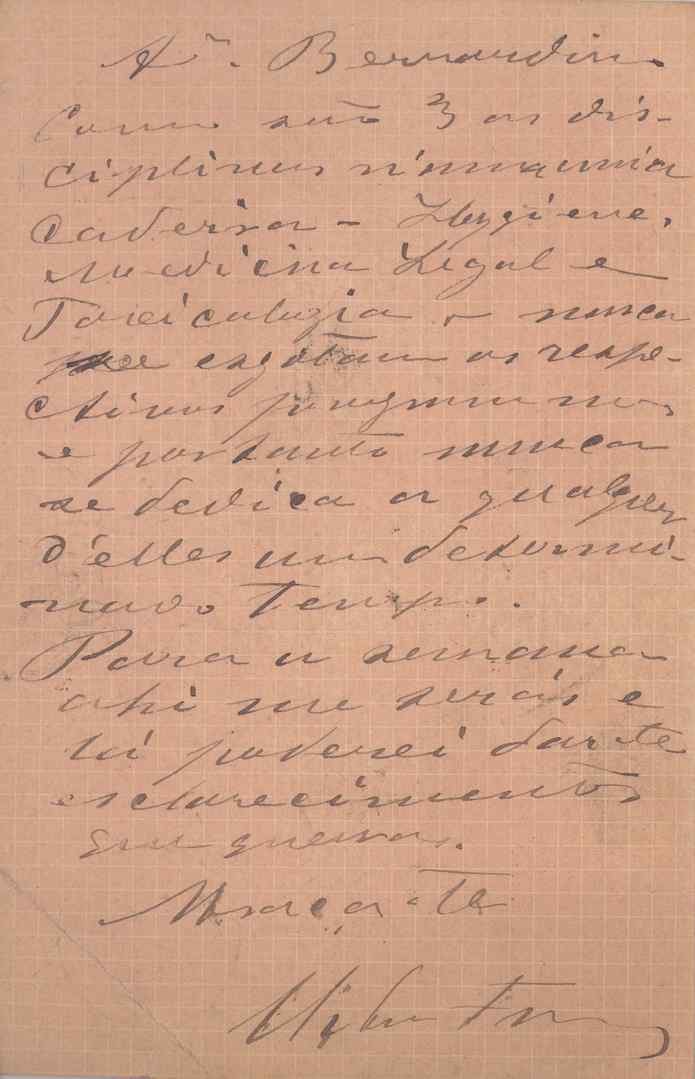 Am.º Bernardino
Como são 3 as dis-
ciplinas n'uma unica
cadeira - Hygiene,
Medicina Legal e
Toxicologia - nunca
se esgotam os respe-
ctivos programmas
e portanto nunca
se dedica a qualquer
d'elles um determi-
nado tempo.
Para a semana
ahi me verás e
lá poderei dar-te
esclarecimentos
que queiras.
Abraça-te